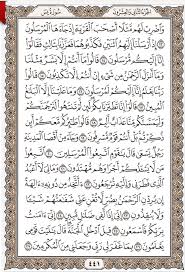 الجزء الثاني والعشرون سورة يس
وَٱضْرِبْ لَهُم مَّثَلًا أَصْحَٰبَ ٱلْقَرْيَةِ إِذْ جَآءَهَا ٱلْمُرْسَلُونَ
۝١٣ إِذْ أَرْسَلْنَآ إِلَيْهِمُ ٱثْنَيْنِ فَكَذَّبُوهُمَا فَعَزَّزْنَا بِثَالِثٍ فَقَالُوٓا۟
إِنَّآ إِلَيْكُم مُّرْسَلُونَ ۝١٤ قَالُوا۟ مَآ أَنتُمْ إِلَّا بَشَرٌ مِّثْلُنَا
وَمَآ أَنزَلَ ٱلرَّحْمَٰنُ مِن شَىْءٍ إِنْ أَنتُمْ إِلَّا تَكْذِبُونَ ۝١٥ قَالُوا۟
رَبُّنَا يَعْلَمُ إِنَّآ إِلَيْكُمْ لَمُرْسَلُونَ ۝١٦ وَمَا عَلَيْنَآ إِلَّا ٱلْبَلَٰغُ
ٱلْمُبِينُ ۝١٧ قَالُوٓا۟ إِنَّا تَطَيَّرْنَا بِكُمْ لَئِن لَّمْ تَنتَهُوا۟ لَنَرْجُمَنَّكُمْ
وَلَيَمَسَّنَّكُم مِّنَّا عَذَابٌ أَلِيمٌ ۝١٨ قَالُوا۟ طَٰٓئِرُكُم مَّعَكُمْ أَئِن
ذُكِّرْتُم بَلْ أَنتُمْ قَوْمٌ مُّسْرِفُونَ ۝١٩ وَجَآءَ مِنْ أَقْصَا ٱلْمَدِينَةِ
رَجُلٌ يَسْعَىٰ قَالَ يَٰقَوْمِ ٱتَّبِعُوا۟ ٱلْمُرْسَلِينَ ۝٢٠ ٱتَّبِعُوا۟
مَن لَّا يَسْـَٔلُكُمْ أَجْرًا وَهُم مُّهْتَدُونَ ۝٢١ وَمَا لِىَ لَآ أَعْبُدُ
ٱلَّذِى فَطَرَنِى وَإِلَيْهِ تُرْجَعُونَ ۝٢٢ ءَأَتَّخِذُ مِن دُونِهِۦٓ ءَالِهَةً
إِن يُرِدْنِ ٱلرَّحْمَٰنُ بِضُرٍّ لَّا تُغْنِ عَنِّى شَفَٰعَتُهُمْ شَيْـًٔا
وَلَا يُنقِذُونِ ۝٢٣ إِنِّىٓ إِذًا لَّفِى ضَلَٰلٍ مُّبِينٍ ۝٢٤ إِنِّىٓ ءَامَنتُ
بِرَبِّكُمْ فَٱسْمَعُونِ ۝٢٥ قِيلَ ٱدْخُلِ ٱلْجَنَّةَ قَالَ يَٰلَيْتَ قَوْمِى
يَعْلَمُونَ ۝٢٦ بِمَا غَفَرَ لِى رَبِّى وَجَعَلَنِى مِنَ ٱلْمُكْرَمِينَ ۝٢٧
٤٤١